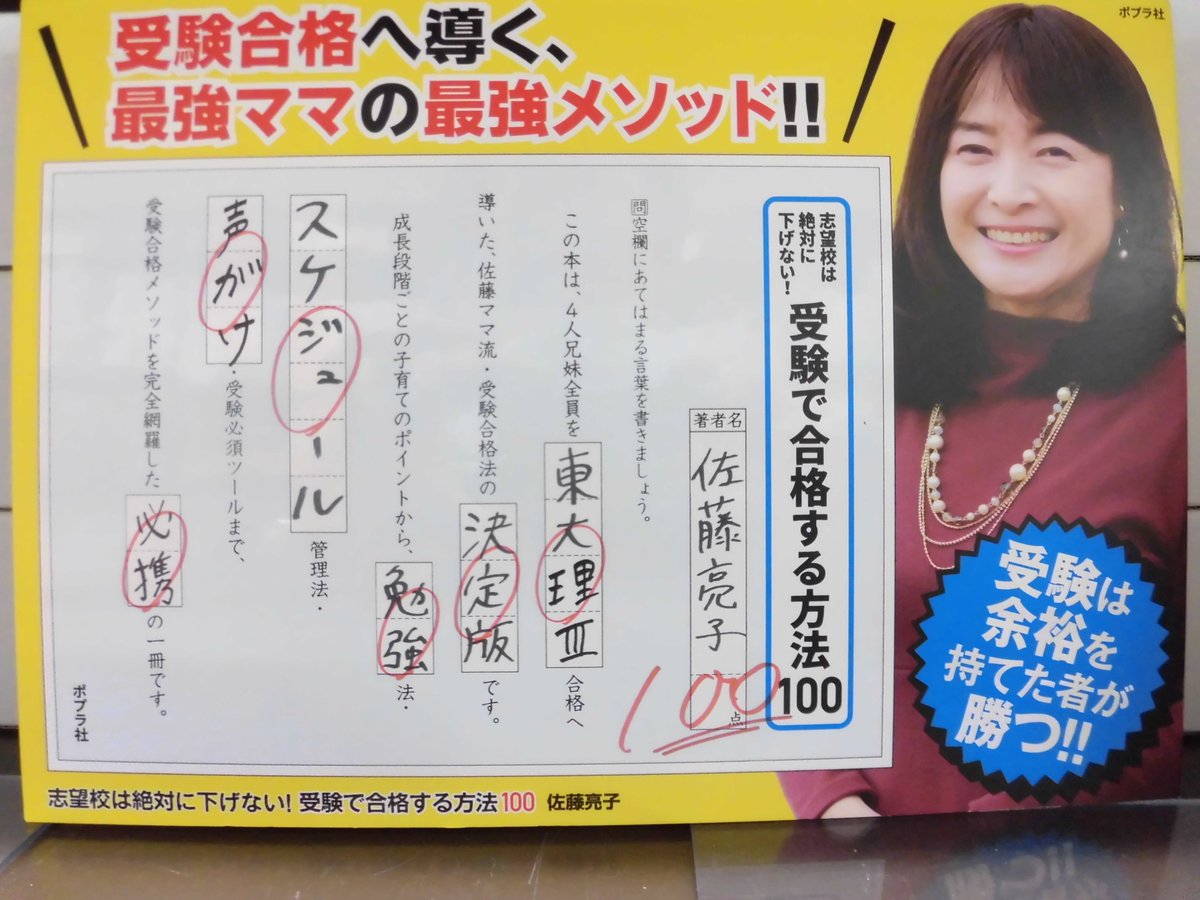 ポプラ社
受験合格へ導く、
最強ママの最強メソッド!!
志望校は
絶対に
下げない!
受験で合格する方法100
著者名
佐藤亮子
100点
問空欄にあてはまる言葉を書きましょう。
この本は、4人兄妹全員を東大理Ⅲ合格へ
導いた、佐藤ママ流・受験合格法の決定版です。
成長段階ごとの子育てのポイントから、勉強法・
スケジュール管理法・
声がけ・受験必須ツールまで、
受験合格メソッドを完全網羅した必携の一冊です。
ポプラ社
受験は
余裕を
持てた者が
勝つ!!
志望校は絶対に下げない!受験で合格する方法100 佐藤亮子